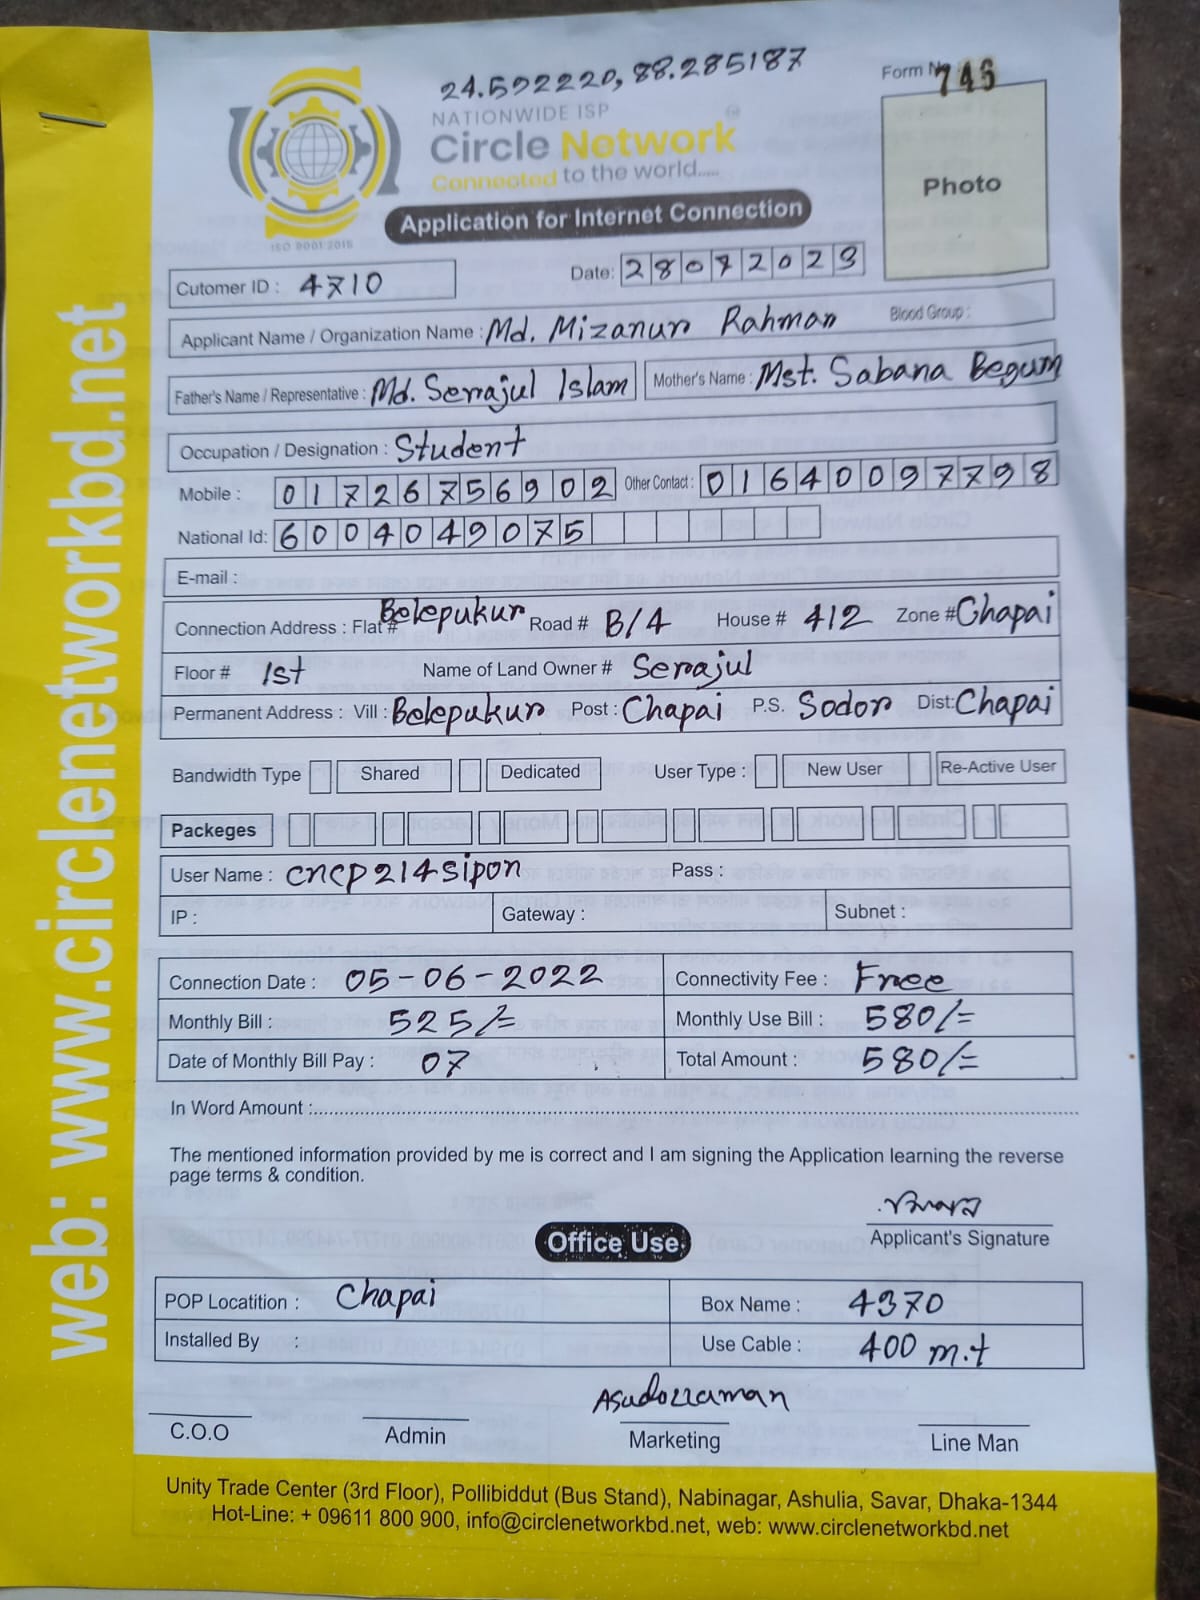 24.592220, 88.285187
Form No 746
NATIONWIDE ISP
Circle Network
Connected to the world.....
ISO 9001:2015
Application for Internet Connection
Photo
Cutomer ID : 4710
Date: 28072023
Applicant Name / Organization Name : Md. Mizanur Rahman Blood Group :
Father's Name / Representative : Md. Serajul Islam Mother's Name : Mst. Sabana Begum
Occupation / Designation : Student
Mobile : 01726756902 Other Contact : 01640097798
National Id: 6004049075
E-mail :
Connection Address : Flat # Belepukur Road # B/4 House # 412 Zone # Chapai
Floor # 1st Name of Land Owner # Serajul
Permanent Address : Vill : Belepukur Post : Chapai P.S. Sodor Dist: Chapai
Bandwidth Type Shared Dedicated User Type : New User Re-Active User
Packeges
User Name : cncp214sipon Pass :
IP : Gateway : Subnet :
Connection Date : 05-06-2022 Connectivity Fee : Free
Monthly Bill : 525/= Monthly Use Bill : 580/=
Date of Monthly Bill Pay : 07 Total Amount : 580/=
In Word Amount :
The mentioned information provided by me is correct and I am signing the Application learning the reverse
page terms & condition.
Applicant's Signature
Office Use
POP Locatition : Chapai Box Name : 4370
Installed By : Use Cable : 400 m.t
Asadozzaman
C.O.O Admin Marketing Line Man
Unity Trade Center (3rd Floor), Pollibiddut (Bus Stand), Nabinagar, Ashulia, Savar, Dhaka-1344
Hot-Line: + 09611 800 900, info@circlenetworkbd.net, web: www.circlenetworkbd.net
web: www.circlenetworkbd.net